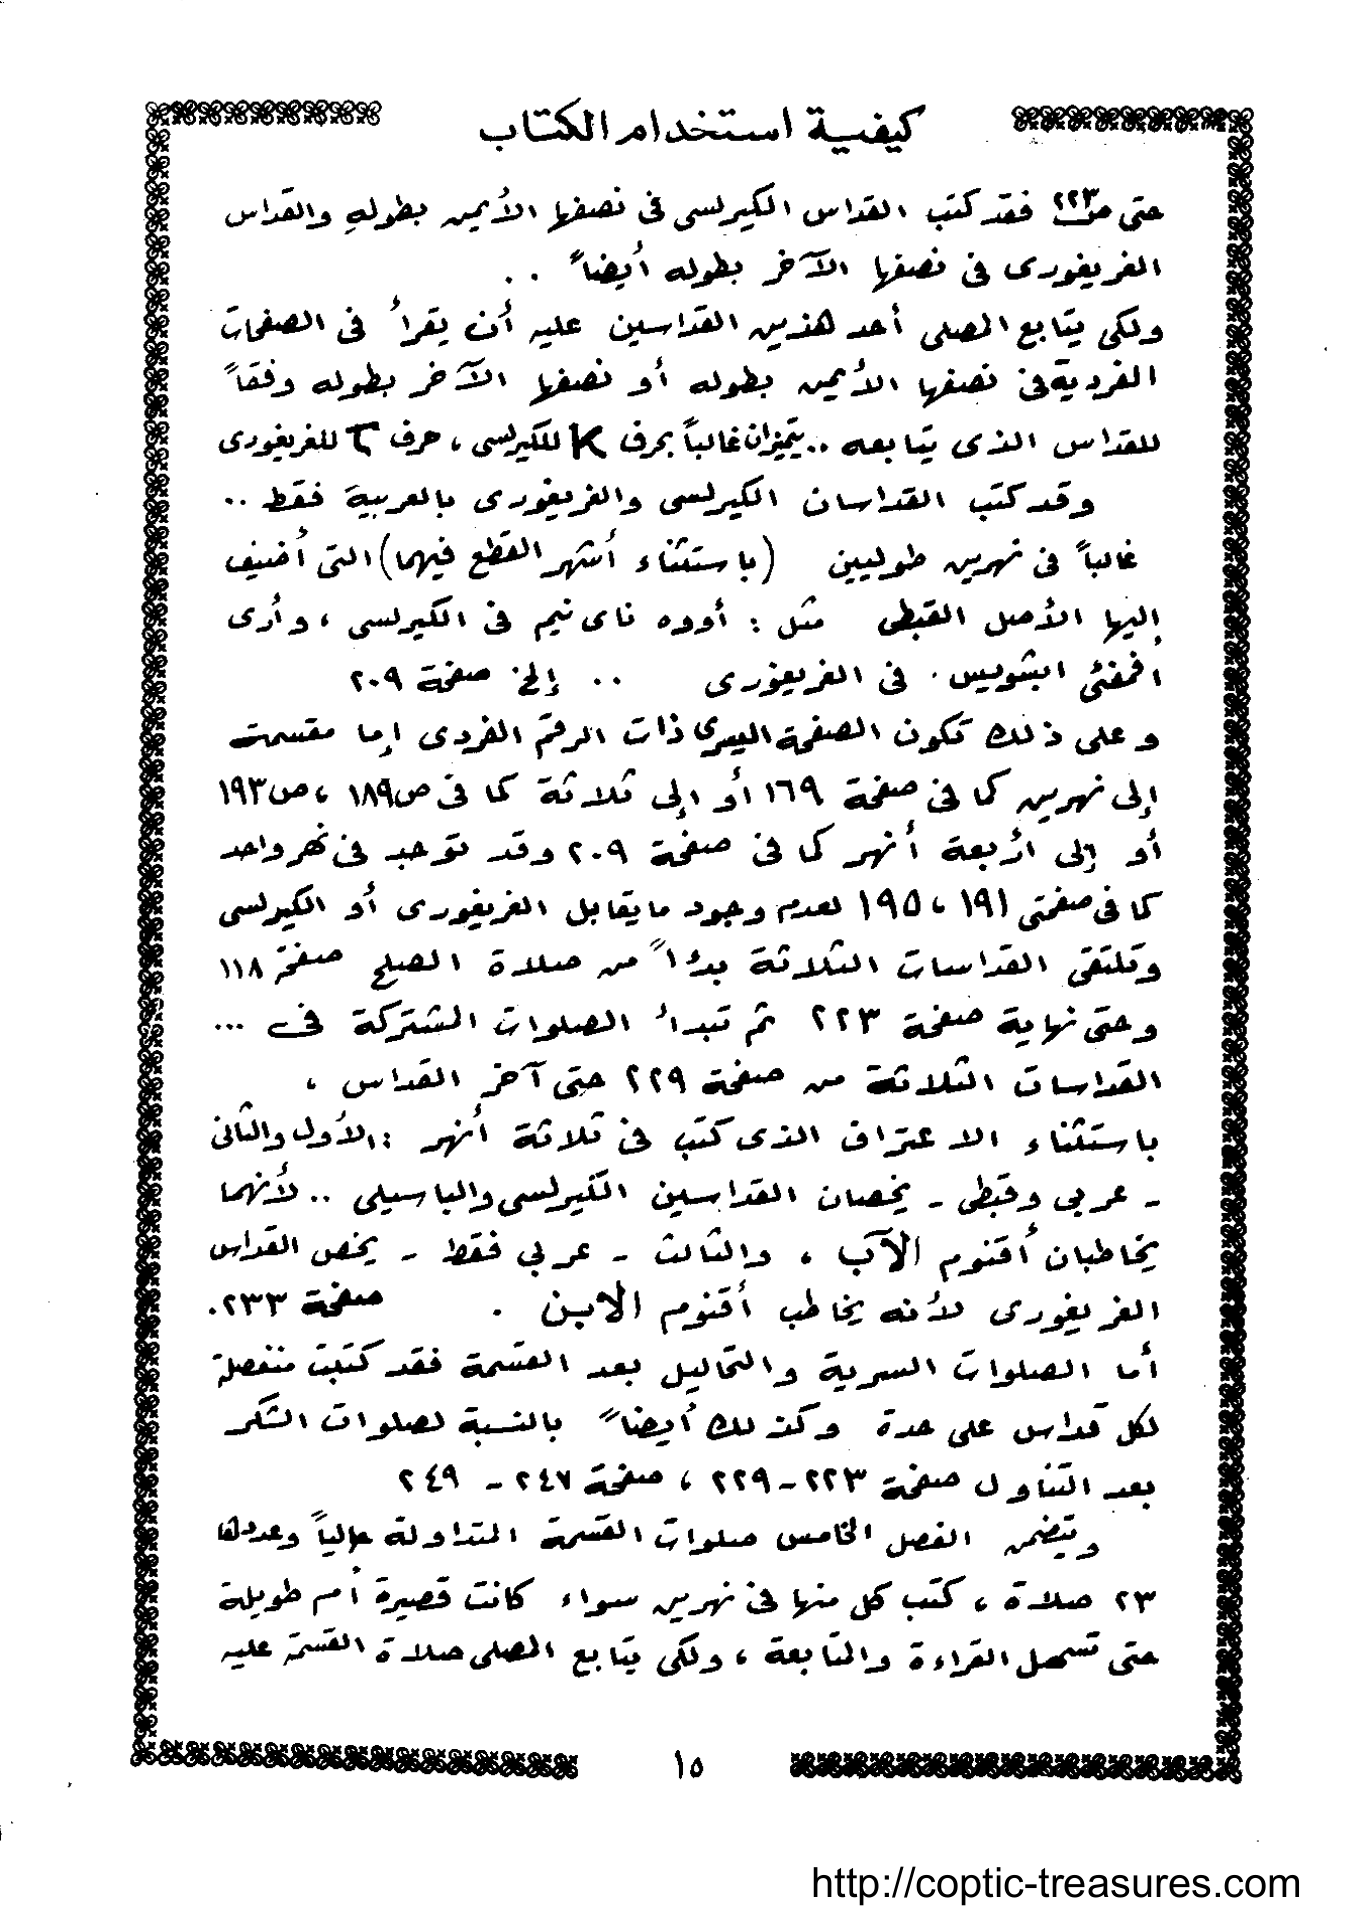 كيفية استخدام الكتاب
حتى ص٢٢٣ فقد كتب القداس الكيرلسى فى نصفها الأيمن بطوله والقداس
الغريغورى فى نصفها الآخر بطوله أيضاً . .
ولكى يتابع المصلى أحد هذين القداسين عليه أن يقرأ فى الصفحات
الفردية فى نصفها الأيمن بطوله أو نصفها الآخر بطوله وفقاً
للقداس الذى يتابعه .. يتميزان غالباً بحرف K للكيرلسى ، حرف ⲧ للغريغورى
وقد كتب القداسان الكيرلسى والغريغورى بالعربية فقط ..
غالباً فى نهرين طوليين (باستثناء أشهر القطع فيهما) التى أضيف
إليها الأصل القبطى مثل : أووه ناى نيم فى الكيرلسى ، وأرى
افمفئى ابشويس . فى الغريغورى .. إلخ صفحة ٢٠٩
وعلى ذلك تكون الصفحة اليسرى ذات الرقم الفردى إما مقسمة
إلى نهرين كما فى صفحة ١٦٩ أو إلى ثلاثة كما فى ص١٨٩ ، ص١٩٣
أو إلى أربعة أنهر كما فى صفحة ٢٠٩ وقد توجد فى نهر واحد
كما فى صفحتى ١٩١ ، ١٩٥ لعدم وجود ما يقابل الغريغورى أو الكيرلسى
وتلتقى القداسات الثلاثة بدءاً من صلاة الصلح صفحة ١١٨
وحتى نهاية صفحة ٢٢٣ ثم تبدأ الصلوات المشتركة فى ...
القداسات الثلاثة من صفحة ٢٢٩ حتى آخر القداس ،
باستثناء الاعتراف الذى كتب فى ثلاثة أنهر : الأول والثانى
- عربى وقبطى - يخصان القداسين الكيرلسى والباسيلى .. لأنهما
يخاطبان أقنوم الآب ، والثالث - عربى فقط - يخص القداس
الغريغورى لأنه يخاطب أقنوم الابن . صفحة ٢٣٣.
أما الصلوات السرية والتحاليل بعد القسمة فقد كتبت منفصلة
لكل قداس على حدة وكذلك أيضاً بالنسبة لصلوات الشكر
بعد التناول صفحة ٢٢٣ - ٢٢٩ ، صفحة ٢٤٧ - ٢٤٩
ويتضمن الفصل الخامس صلوات القسمة المتداولة حالياً وعددها
٢٣ صلاة ، كتب كل منها فى نهرين سواء كانت قصيرة أم طويلة
حتى تسهل القراءة والمتابعة ، ولكى يتابع المصلى صلاة القسمة عليه
١٥
http://coptic-treasures.com